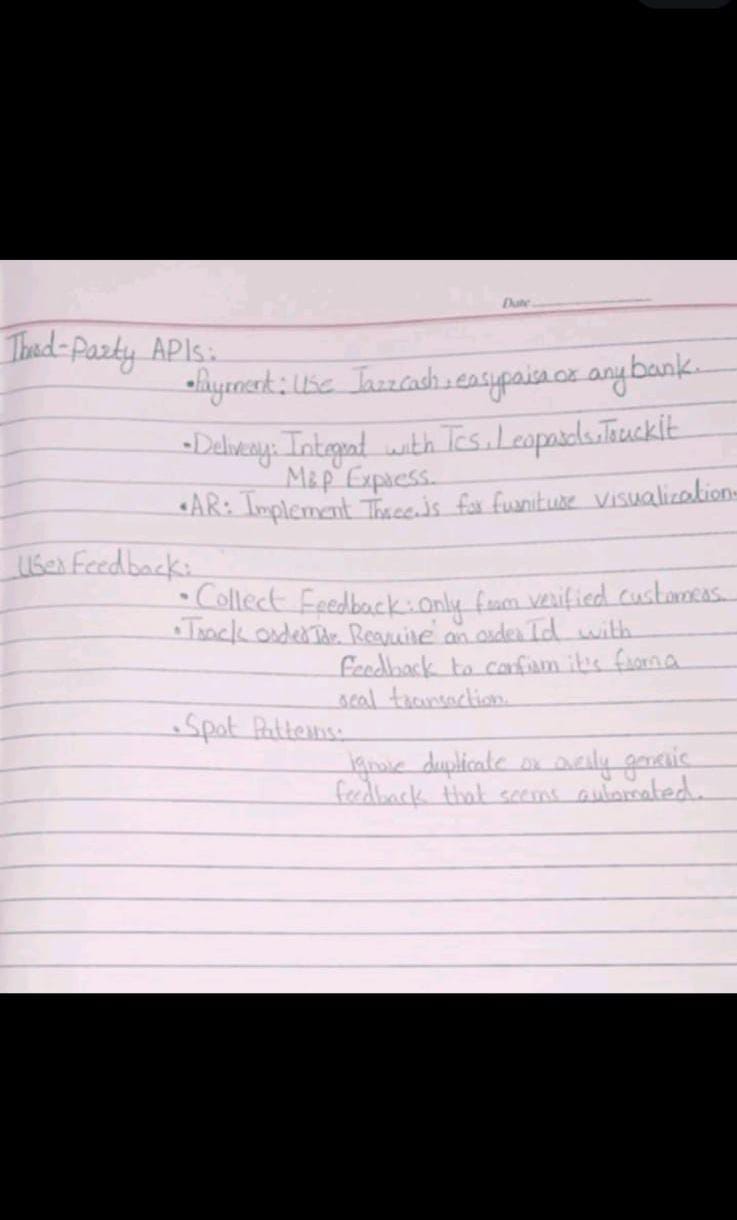 Date
Third-Party APIs:
•Payment: Use Jazzcash, easypaisa or any bank.
•Delivery: Integrat with Tcs, Leopards, Truckit
M&P Express.
•AR: Implement Three.js for furniture visualization.
User Feedback:
• Collect Feedback: only from verified customers.
•Track order Require an order Id with
feedback to confirm it's from a
real transaction.
•Spot Patterns:
Ignore duplicate or overly generic
feedback that seems automated.